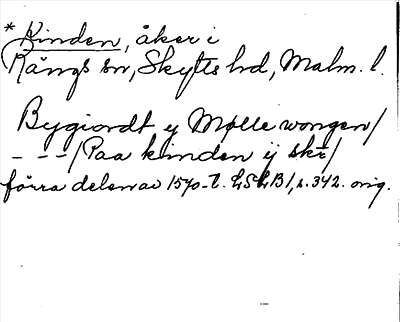 * Kinden, åker i
Rängs sn, Skytts hd, Malm. l.
Bygiordt y Mølle wongen/
- - -/Paa kinden ij skr/
förra delen av 1570-t. LSLB1, s. 342. orig.